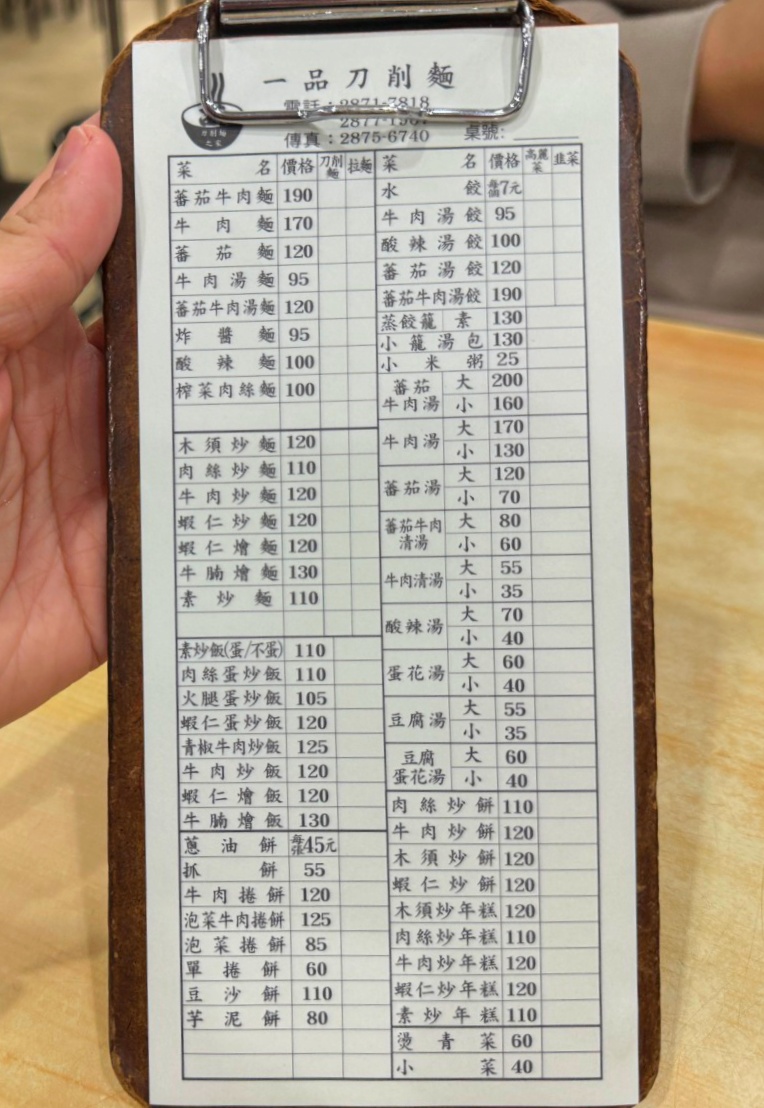 一品刀削麵
刀削麵之家
電話：2871-3818
2877-1987
傳真：2875-6740 桌號：
菜名 價格 刀削麵 拉麵
蕃茄牛肉麵 190
牛肉麵 170
蕃茄麵 120
牛肉湯麵 95
蕃茄牛肉湯麵 120
炸醬麵 95
酸辣麵 100
榨菜肉絲麵 100
木須炒麵 120
肉絲炒麵 110
牛肉炒麵 120
蝦仁炒麵 120
蝦仁燴麵 120
牛腩燴麵 130
素炒麵 110
素炒飯(蛋/不蛋) 110
肉絲蛋炒飯 110
火腿蛋炒飯 105
蝦仁蛋炒飯 120
青椒牛肉炒飯 125
牛肉炒飯 120
蝦仁燴飯 120
牛腩燴飯 130
蔥油餅 每張45元
抓餅 55
牛肉捲餅 120
泡菜牛肉捲餅 125
泡菜捲餅 85
單捲餅 60
豆沙餅 110
芋泥餅 80
菜名 價格 高麗菜 韭菜
水餃 每個7元
牛肉湯餃 95
酸辣湯餃 100
蕃茄湯餃 120
蕃茄牛肉湯餃 190
蒸餃籠素 130
小籠湯包 130
小米粥 25
蕃茄牛肉湯 大 200
小 160
牛肉湯 大 170
小 130
蕃茄湯 大 120
小 70
蕃茄牛肉清湯 大 80
小 60
牛肉清湯 大 55
小 35
酸辣湯 大 70
小 40
蛋花湯 大 60
小 40
豆腐湯 大 55
小 35
豆腐蛋花湯 大 60
小 40
肉絲炒餅 110
牛肉炒餅 120
木須炒餅 120
蝦仁炒餅 120
木須炒年糕 120
肉絲炒年糕 110
牛肉炒年糕 120
蝦仁炒年糕 120
素炒年糕 110
燙青菜 60
小菜 40